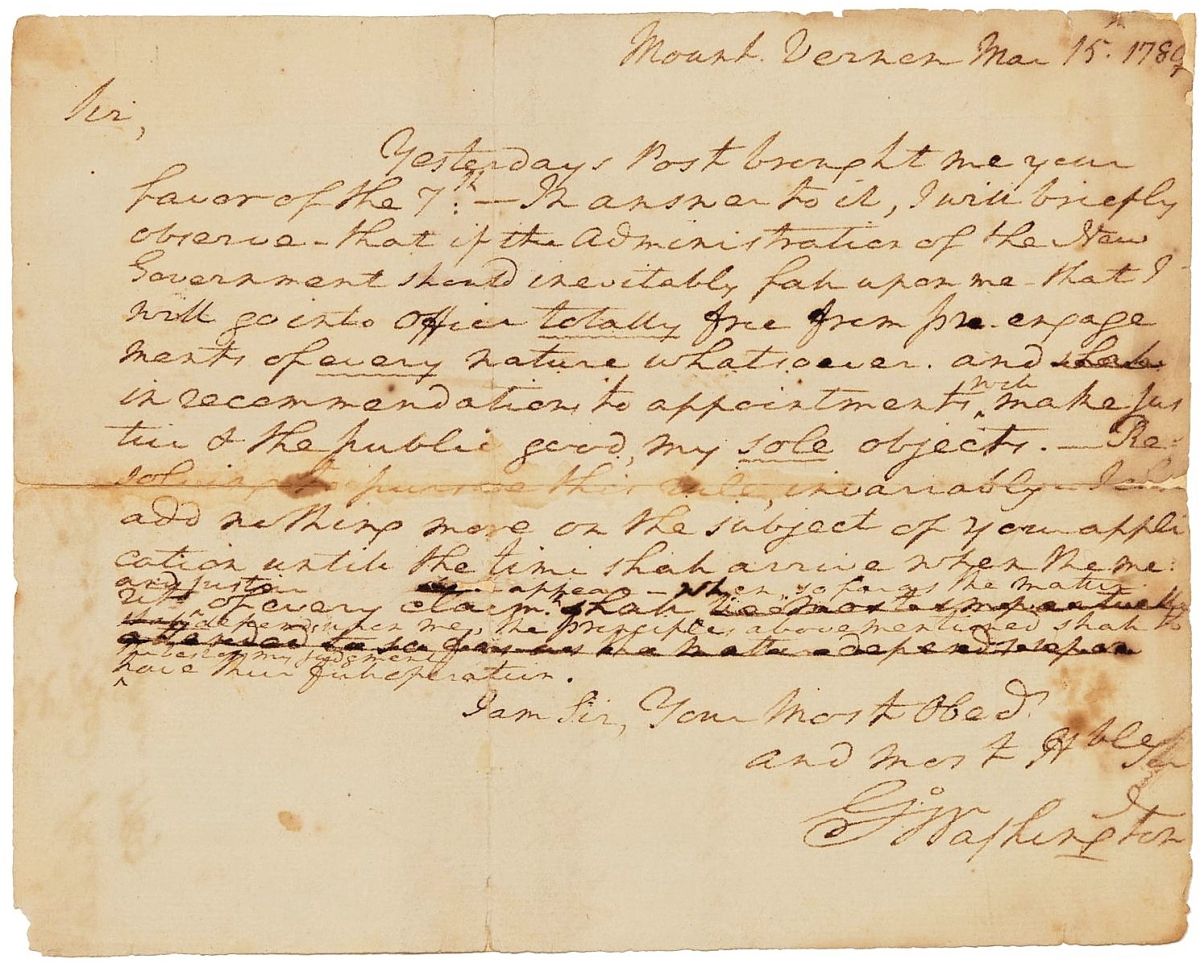 Mount Vernon Mar 15th. 1789
Sir,
Yesterdays Post brought me your
favor of the 7th. — In answer to it, I will briefly
observe - that if the Administration of the New
Government should inevitably fall upon me - that I
will go into Office totally free from pre-engage
ments of every nature whatsoever. and shall
in recommendations to appointments will make jus
tice & the public good, my sole objects. — Re-
solving to pursue this rule, invariably I shall
add nothing more on the subject of your appli
cation until the time shall arrive when the me:
and justice appear - when, so far as the matter
rits of every claim shall
depends upon me, the principles abovementioned shall
attended to so far as the matter depends upon
my judgment
have their full operation.
I am Sir, Your Most Obed
and most Hble Ser
Go: Washington